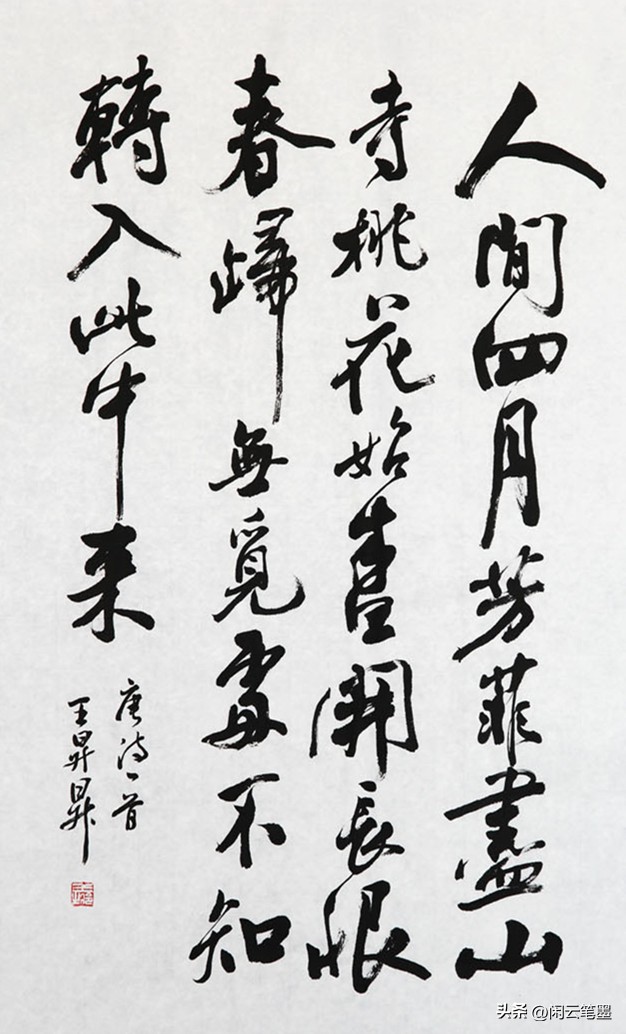 人間四月芳菲盡山
寺桃花始盛開長恨
春歸無覓處不知
轉入此中来
唐诗一首
王昇昇
头条 @闲云笔墨